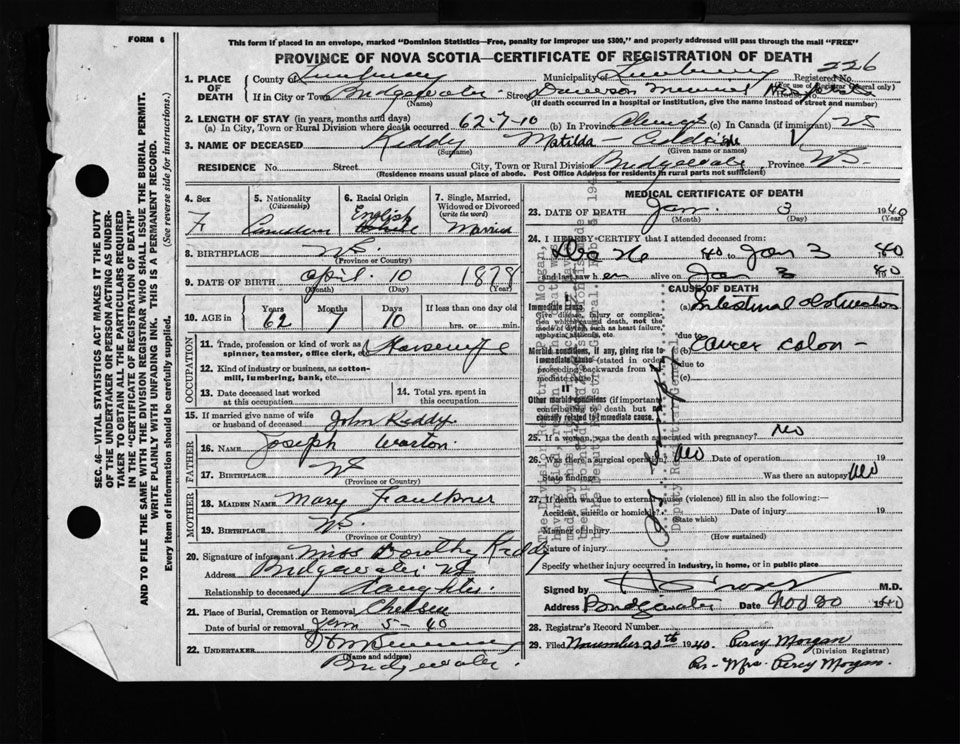 FORM 6
This form if placed in an envelope, marked "Dominion Statistics—Free, penalty for improper use $300," and properly addressed will pass through the mail "FREE"
PROVINCE OF NOVA SCOTIA—CERTIFICATE OF REGISTRATION OF DEATH
226
1. PLACE OF DEATH
County of Lunenburg Municipality of Lunenburg Registered No.
(For use of Registrar General only)
If in City or Town Bridgewater Street Dawson Memorial Hospital House No.
(Name) (If death occurred in a hospital or institution, give the name instead of street and number)
2. LENGTH OF STAY (in years, months and days)
(a) In City, Town or Rural Division where death occurred 62-7-10 (b) In Province Always (c) In Canada (if immigrant)
3. NAME OF DECEASED Keddy Matilda
(Surname) (Given name or names)
RESIDENCE No. Street City, Town or Rural Division Bridgewater Province NS.
(Residence means usual place of abode. Post Office Address for residents in rural parts not sufficient)
4. Sex F
5. Nationality (Citizenship) Canadian
6. Racial Origin English
7. Single, Married, Widowed or Divorced (write the word) Married
8. BIRTHPLACE NS.
(Province or Country)
9. DATE OF BIRTH April 10 1878
(Month) (Day) (Year)
10. AGE in Years 62 Months 7 Days 10 If less than one day old hrs. or min.
OCCUPATION
11. Trade, profession or kind of work as spinner, teamster, office clerk, etc. Housewife
12. Kind of industry or business, as cotton-mill, lumbering, bank, etc.
13. Date deceased last worked at this occupation
14. Total yrs. spent in this occupation
15. If married give name of wife or husband of deceased John Keddy
FATHER
16. NAME Joseph
17. BIRTHPLACE NS
(Province or Country)
MOTHER
18. MAIDEN NAME Mary Faulkner
19. BIRTHPLACE NS.
(Province or Country)
20. Signature of informant Miss Dorothy Keddy
Address Bridgewater NS
Relationship to deceased daughter
21. Place of Burial, Cremation or Removal Chelsea
Date of burial or removal Jan 5-40
22. UNDERTAKER
(Name and address)
Bridgewater.
MEDICAL CERTIFICATE OF DEATH
23. DATE OF DEATH Jan. 3 1940
(Month) (Day)
24. I HEREBY CERTIFY that I attended deceased from:
40 to Jan 3 1940
and last saw her alive on Jan 3 1940
CAUSE OF DEATH
Immediate cause (a) Intestinal obstruction
Give disease, injury or complication which caused death, not the mode of dying, such as heart failure, asphyxia, asthenia, etc.
due to
Morbid conditions, if any, giving rise to immediate cause (stated in order proceeding backwards from immediate cause) (b) Cancer colon -
due to
(c)
II
Other morbid conditions (if important) contributing to death but not causally related to immediate cause.
25. If a woman, was the death associated with pregnancy? No
26. Was there a surgical operation? No Date of operation 19
State findings Was there an autopsy? No
27. If death was due to external causes (violence) fill in also the following:
Accident, suicide or homicide? Date of injury 19
(State which)
Manner of injury
(How sustained)
Nature of injury
Specify whether injury occurred in industry, in home, or in public place
Signed by M.D.
Address Bridgewater Date Nov 20 1940
28. Registrar's Record Number
29. Filed November 20th 1940. Percy Morgan
(Division Registrar)
Per- Mrs. Percy Morgan.
Deputy Registrar General
SEC. 46—VITAL STATISTICS ACT MAKES IT THE DUTY
OF THE UNDERTAKER OR PERSON ACTING AS UNDER-
TAKER TO OBTAIN ALL THE PARTICULARS REQUIRED
IN THE "CERTIFICATE OF REGISTRATION OF DEATH"
AND TO FILE THE SAME WITH THE DIVISION REGISTRAR WHO SHALL ISSUE THE BURIAL PERMIT.
WRITE PLAINLY WITH UNFADING INK. THIS IS A PERMANENT RECORD.
Every item of information should be carefully supplied. (See reverse side for instructions.)